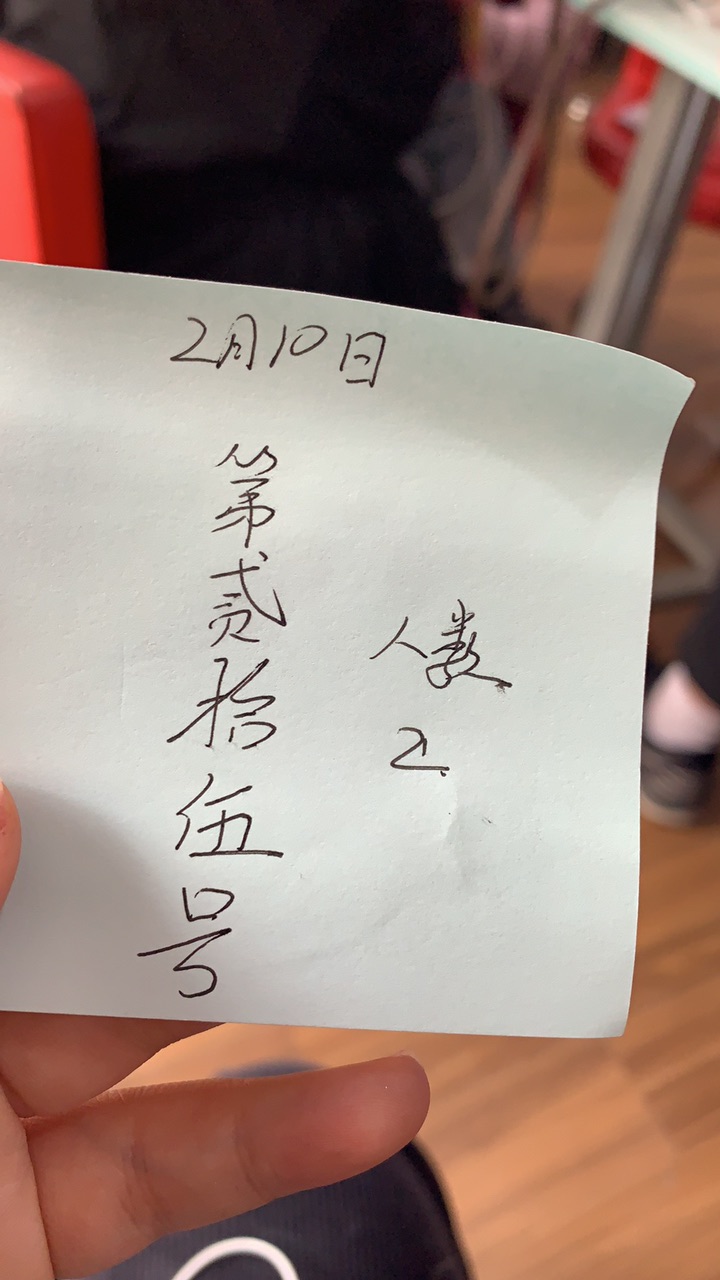 2月10日
第贰拾伍号
人数
2